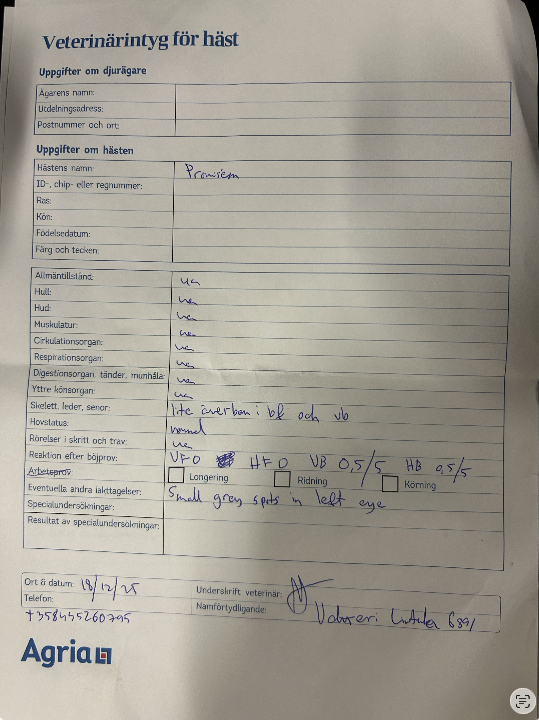 Veterinärintyg för häst
Uppgifter om djurägare
Ägarens namn:
Utdelningsadress:
Postnummer och ort:
Uppgifter om hästen
Hästens namn:
ID-, chip- eller regnummer:
Ras:
Kön:
Födelsedatum:
Färg och tecken:
Allmäntillstånd: ua
Hull: ua
Hud: ua
Muskulatur: ua
Cirkulationsorgan: ua
Respirationsorgan: ua
Digestionsorgan, tänder, munhåla: ua
Yttre könsorgan: ua
Skelett, leder, senor: lite överben i bf och vb
Hovstatus: normal
Rörelser i skritt och trav: ua
Reaktion efter böjprov: VF 0 HF 0 VB 0,5/5 HB 0,5/5
Arbetsprov Longering Ridning Körning
Eventuella andra iakttagelser: Small grey spots in left eye
Specialundersökningar:
Resultat av specialundersökningar:
Ort & datum: 18/12/25 Underskrift veterinär:
Telefon: Namnförtydligande:
+358455260795
Agria